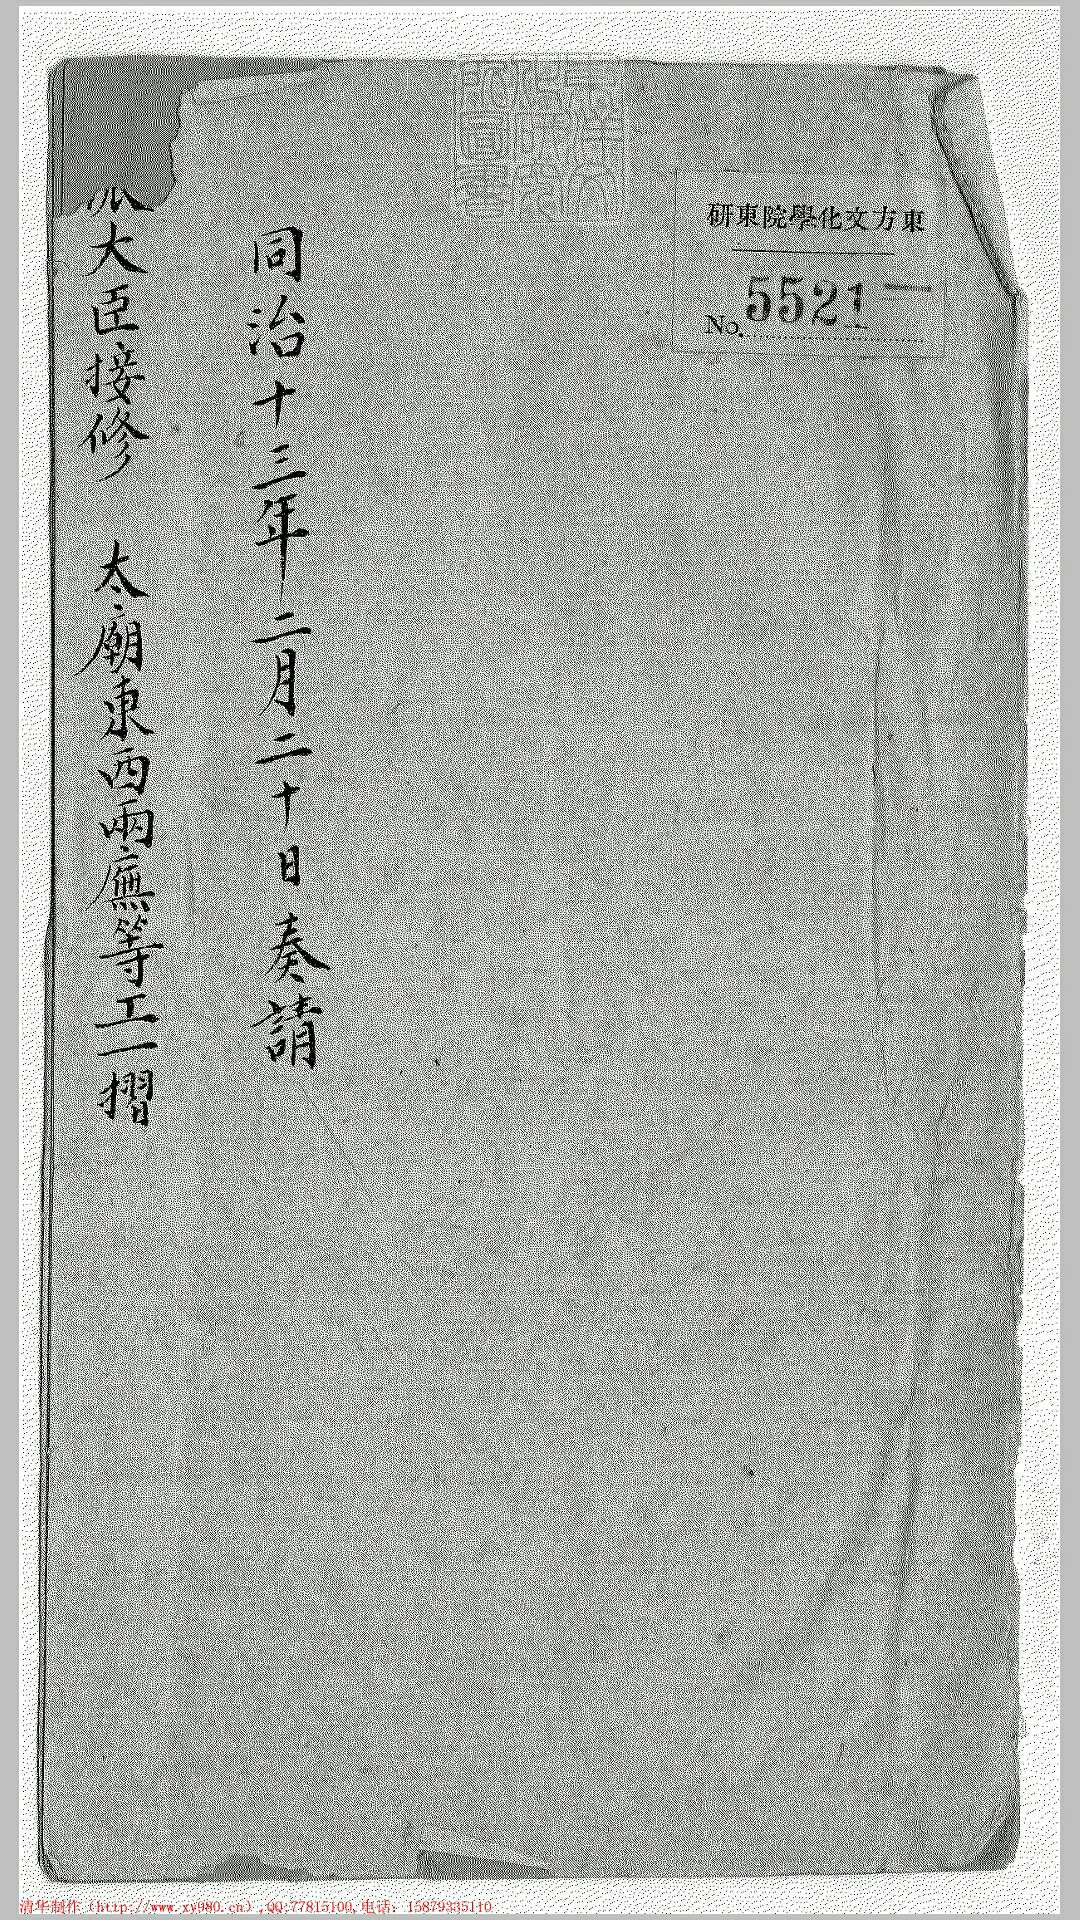 東方文化學院東研
No. 5521
同治十三年二月二十日奏請
派大臣接修　太廟東西兩廡等工一摺
清华制作（http://www.xy980.cn）,QQ:77815100,电话：15879335110